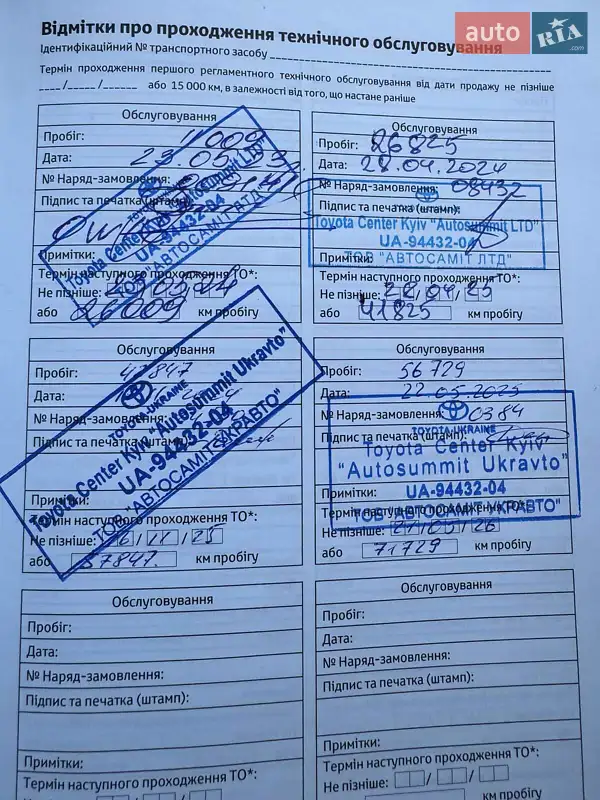 Відмітки про проходження технічного обслуговування
auto RIA .com
Ідентифікаційний № транспортного засобу
Термін проходження першого регламентного технічного обслуговування від дати продажу не пізніше
__/__/____ або 15 000 км, в залежності від того, що настане раніше
Обслуговування
Пробіг: 11009
Дата: 23.05.23
№ Наряд-замовлення:
Підпис та печатка (штамп):
TOYOTA-UKRAINE
Toyota Center Kyiv "Autosummit LTD"
UA-94432-04
ТОВ "АВТОСАМІТ ЛТД"
Примітки:
Термін наступного проходження ТО*:
Не пізніше: 23/05/24
або 26009 км пробігу
Обслуговування
Пробіг: 26825
Дата: 28.04.2024
№ Наряд-замовлення: 08432
Підпис та печатка (штамп):
Toyota Center Kyiv "Autosummit LTD"
UA-94432-04
ТОВ "АВТОСАМІТ ЛТД"
Примітки:
Термін наступного проходження ТО*:
Не пізніше: 28/04/25
або 41825 км пробігу
Обслуговування
Пробіг: 42847
Дата:
№ Наряд-замовлення:
Підпис та печатка (штамп):
TOYOTA-UKRAINE
Toyota Center Kyiv "Autosummit Ukravto"
UA-94432-04
ТОВ "АВТОСАМІТ УКРАВТО"
Примітки:
Термін наступного проходження ТО*:
Не пізніше: 16/11/25
або 57847 км пробігу
Обслуговування
Пробіг: 56729
Дата: 22.05.2025
№ Наряд-замовлення: 0384
Підпис та печатка (штамп):
TOYOTA-UKRAINE
Toyota Center Kyiv
"Autosummit Ukravto"
UA-94432-04
ТОВ "АВТОСАМІТ УКРАВТО"
Примітки:
Термін наступного проходження ТО*:
Не пізніше: 21/05/26
або 71729 км пробігу
Обслуговування
Пробіг:
Дата:
№ Наряд-замовлення:
Підпис та печатка (штамп):
Примітки:
Термін наступного проходження ТО*:
Обслуговування
Пробіг:
Дата:
№ Наряд-замовлення:
Підпис та печатка (штамп):
Примітки:
Термін наступного проходження ТО*:
Не пізніше: / /